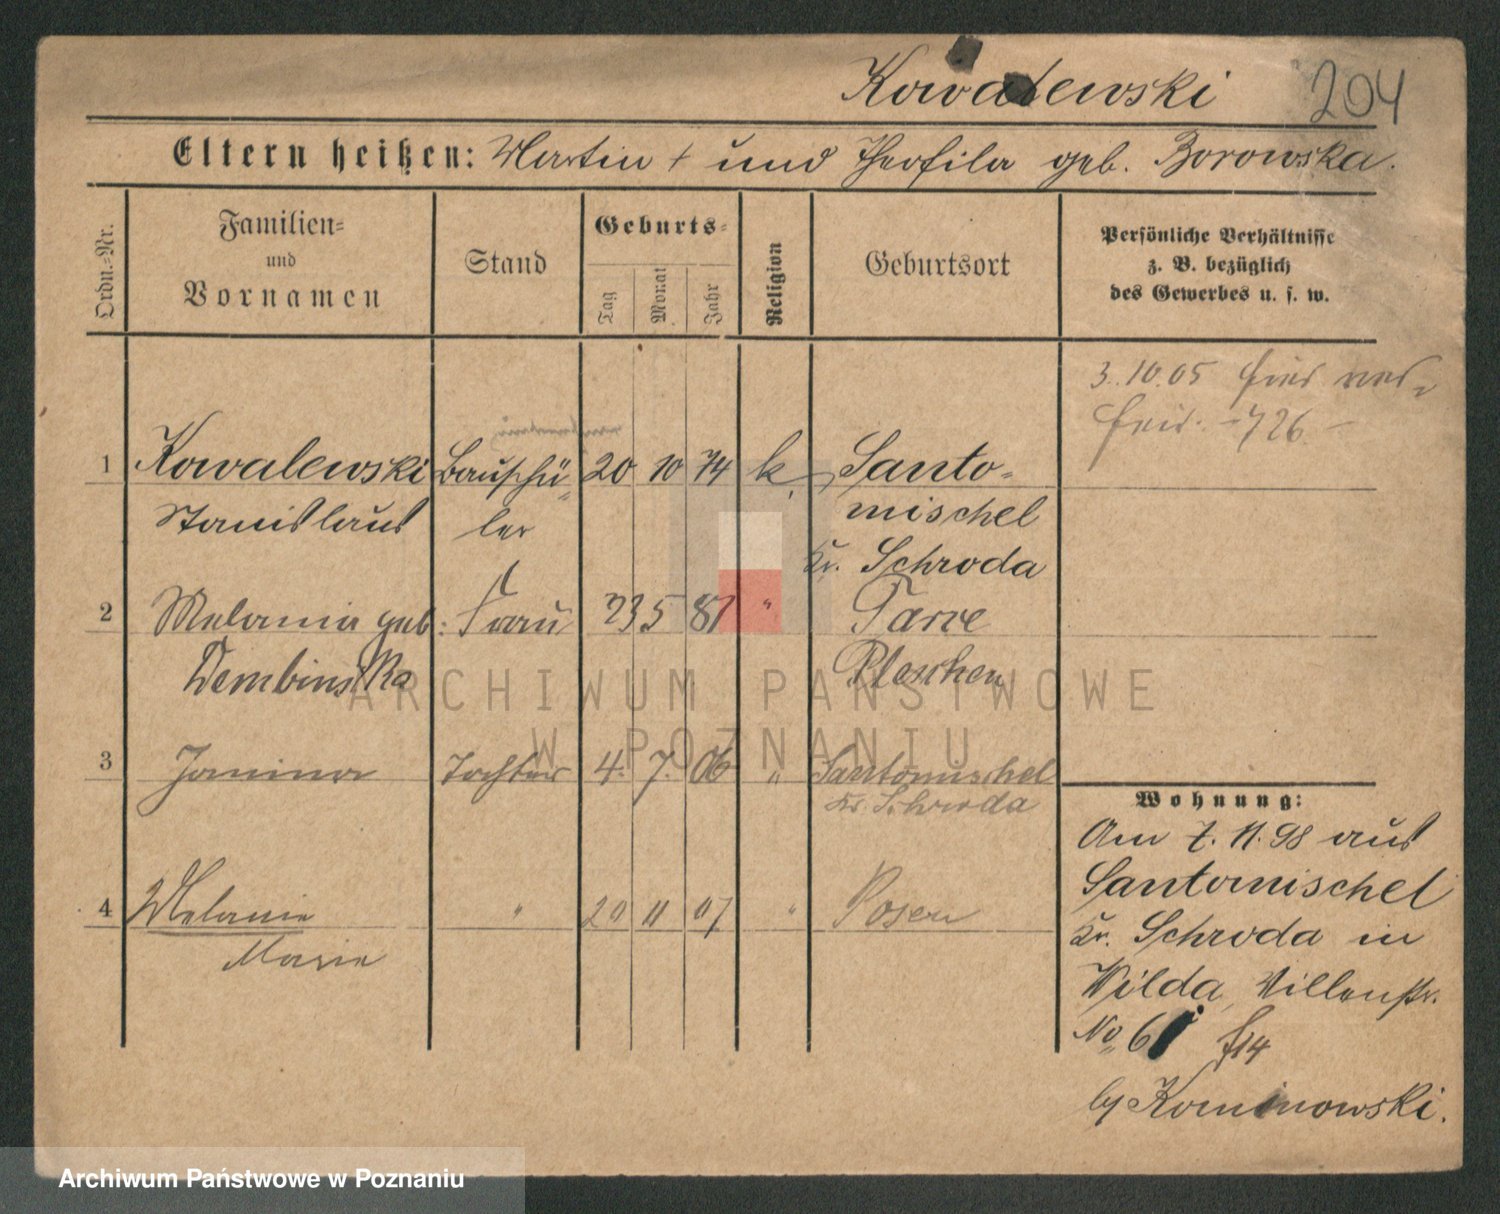 Kowalewski
204
Eltern heißen: Martin † und Theofila geb. Borowska.
Ordn.-Nr.
Familien-
und
Vornamen
Stand
Geburts-
Tag
Monat
Jahr
Religion
Geburtsort
Persönliche Verhältnisse
z. B. bezüglich
des Gewerbes u. s. w.
3.10.05
726.
1 Kowalewski Bauschü- 20 10 74 k. Santo-
Stanislaus ler mischel
Kr. Schroda
2 Melania geb: Frau 23 5 81 " Tarce
Dembinska Pleschen
3 Janina Tochter 4. 7. 06 " Santomischel
Kr. Schroda
4 Melanie " 20 11 07 " Posen
Marie
Wohnung:
Am 7.11.98 aus
Santomischel
Kr. Schroda in
Wilda, Villenstr.
No 6
by Kominowski.
ARCHIWUM PAŃSTWOWE
W POZNANIU
Archiwum Państwowe w Poznaniu